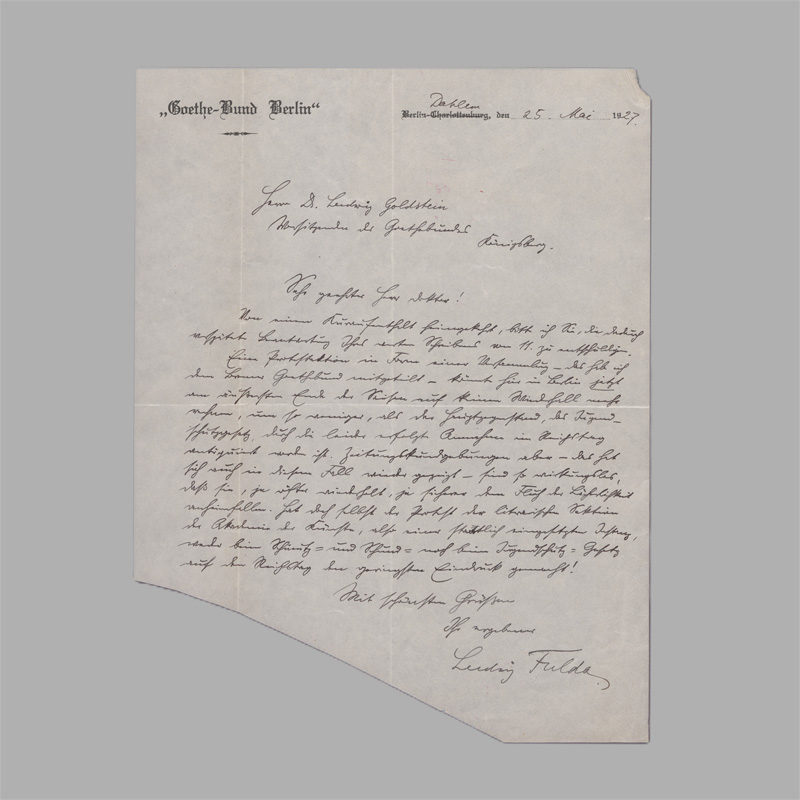 „Goethe-Bund Berlin“
Dahlem
Berlin-Charlottenburg, den 25. Mai 1927.
Herrn Dr. Ludwig Goldstein
Vorsitzender des Goethebundes
Königsberg.
Sehr geehrter Herr Doktor!
Von einem Kuraufenthalt heimgekehrt, bitt ich Sie, die dadurch
verspätete Beantwortung Ihres werten Schreibens vom 11. zu entschuldigen.
Eine Protestaktion in Form einer Versammlung – das hab ich
dem Bremer Goethebund mitgeteilt – könnte hier in Berlin jetzt
am äußersten Ende der Saison auch keinen Widerhall mehr
wecken, um so weniger, als der Hauptgegenstand, das Jugend-
schutzgesetz, durch die leider erfolgte Annahme im Reichstag
antiquiert worden ist. Zeitungskundgebungen aber – das hat
sich auch in diesem Fall wieder gezeigt – sind so wirkungslos,
daß sie, je öfter wiederholt, je sicherer dem Fluch der Lächerlichkeit
anheimfallen. Hat doch selbst der Protest der literarischen Sektion
der Akademie der Künste, also einer staatlich eingesetzten Instanz,
weder beim Schmutz- und Schund- noch beim Jugendschutz-Gesetz
auf den Reichstag den geringsten Eindruck gemacht!
Mit schönsten Grüßen
Ihr ergebener
Ludwig Fulda.